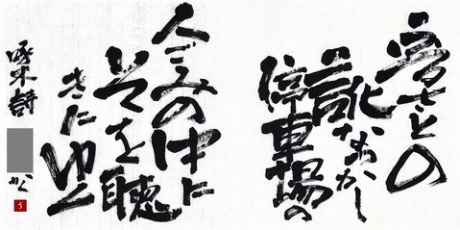 ふるさとの
訛なつかし
停車場の
人ごみの中に
そを聴
きにゆく
啄木詩
かく